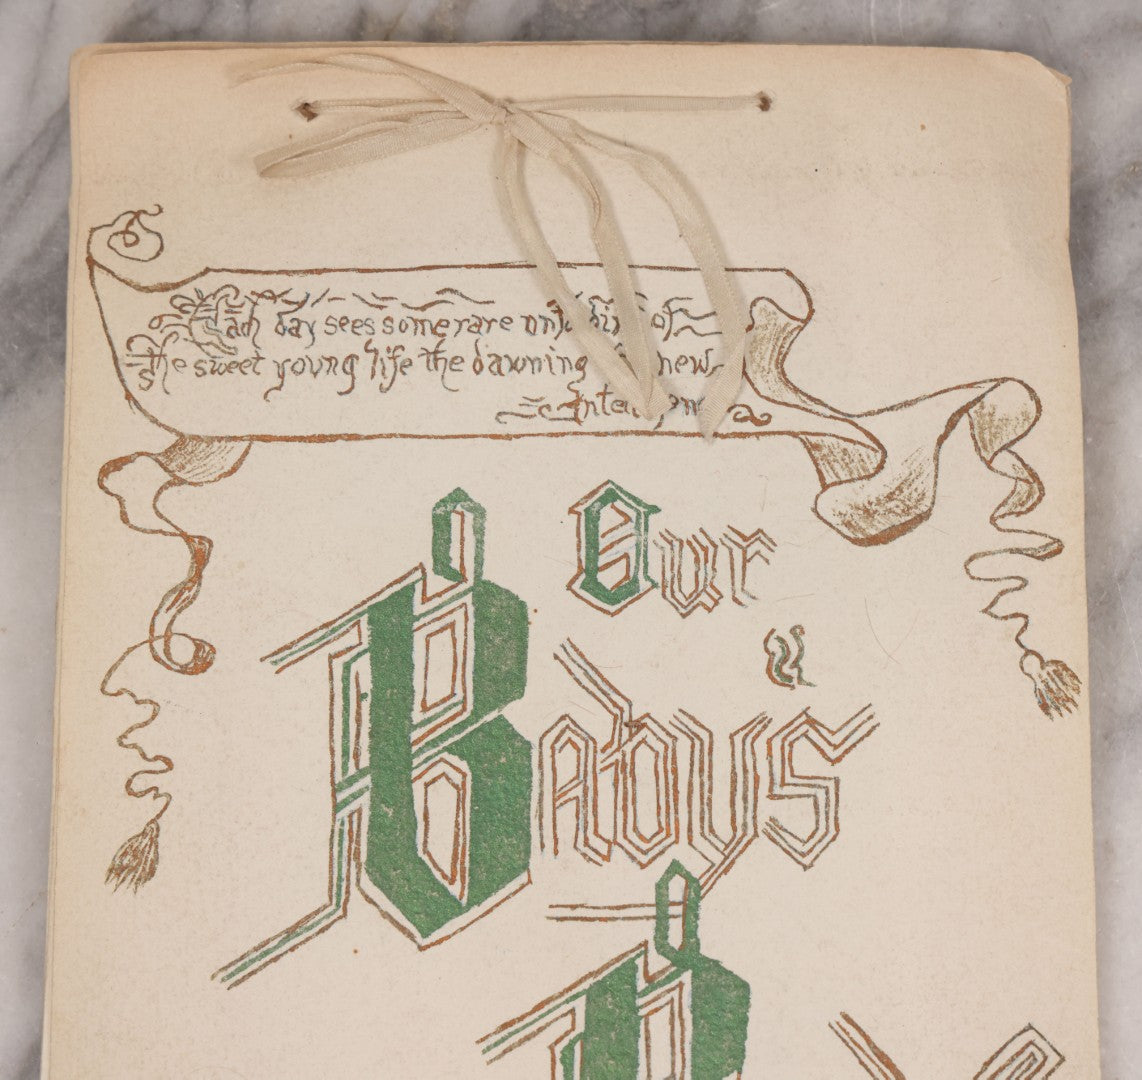 Each day sees some rare unfolding of
the sweet young life the dawning new
Our
Baby's
B